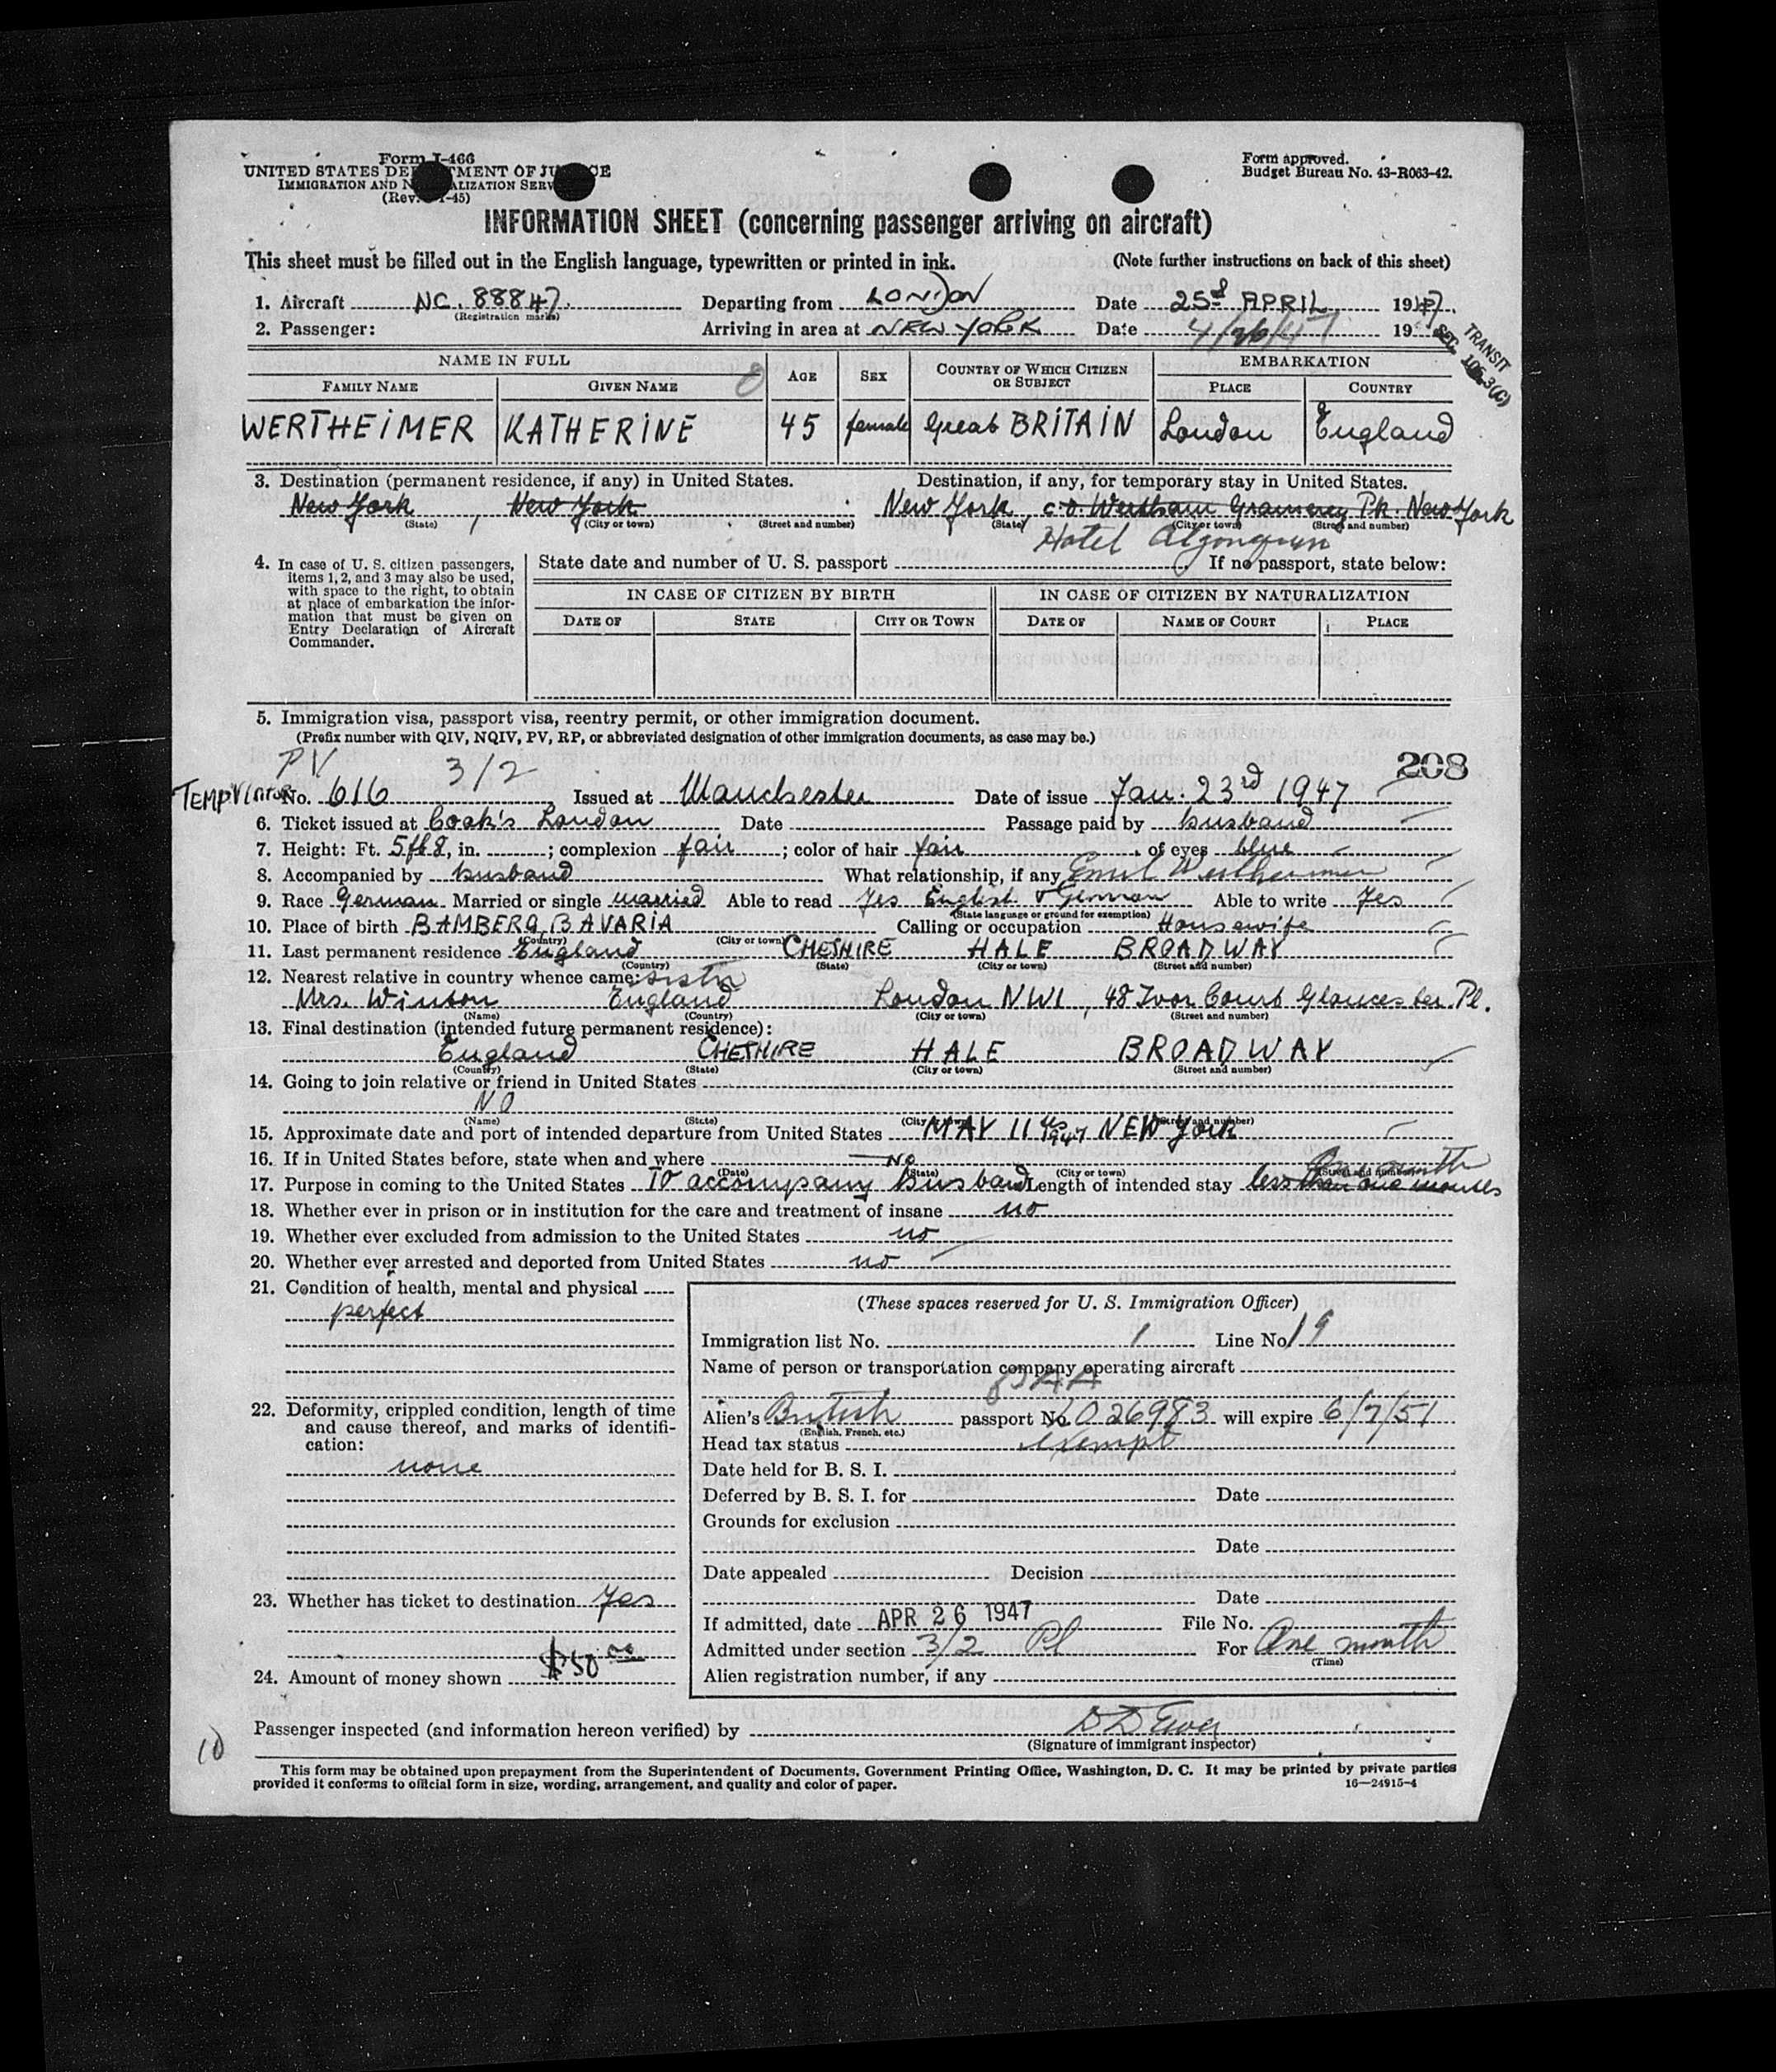 Form I-466
UNITED STATES DEPARTMENT OF JUSTICE
IMMIGRATION AND NATURALIZATION SERVICE
(Rev. -45)
Form approved.
Budget Bureau No. 43-R063-42.
INFORMATION SHEET (concerning passenger arriving on aircraft)
This sheet must be filled out in the English language, typewritten or printed in ink. (Note further instructions on back of this sheet)
1. Aircraft NC. 88847. Departing from LONDON Date 25 APRIL 1947.
(Registration marks)
2. Passenger: Arriving in area at NEW YORK Date 4/26/47 19
TRANSIT
SEC. 3(C)
NAME IN FULL AGE SEX COUNTRY OF WHICH CITIZEN OR SUBJECT EMBARKATION
FAMILY NAME GIVEN NAME PLACE COUNTRY
WERTHEIMER KATHERINE 45 female Great BRITAIN London England
3. Destination (permanent residence, if any) in United States. Destination, if any, for temporary stay in United States.
New York, New York New York, c.o. Wertham Gramercy Pk. New York
(State) (City or town) (Street and number) (State) (City or town) (Street and number)
Hotel Algonquin
4. In case of U. S. citizen passengers, items 1, 2, and 3 may also be used, with space to the right, to obtain at place of embarkation the information that must be given on Entry Declaration of Aircraft Commander.
State date and number of U. S. passport If no passport, state below:
IN CASE OF CITIZEN BY BIRTH IN CASE OF CITIZEN BY NATURALIZATION
DATE OF STATE CITY OR TOWN DATE OF NAME OF COURT PLACE
5. Immigration visa, passport visa, reentry permit, or other immigration document.
(Prefix number with QIV, NQIV, PV, RP, or abbreviated designation of other immigration documents, as case may be.)
PV 3/2 208
TEMP No. 616 Issued at Manchester Date of issue Jan. 23rd 1947
6. Ticket issued at Cook's London Date Passage paid by husband
7. Height: Ft. 5ft 8, in. ; complexion fair ; color of hair fair , of eyes blue
8. Accompanied by husband What relationship, if any Emil Wertheimer
9. Race German Married or single married Able to read Yes English & German Able to write Yes
(State language or ground for exemption)
10. Place of birth BAMBERG, BAVARIA Calling or occupation Housewife
(Country) (City or town)
11. Last permanent residence England CHESHIRE HALE BROADWAY
(Country) (State) (City or town) (Street and number)
12. Nearest relative in country whence came: sister
Mrs. Winton England London NW1, 48 Ivor Court Gloucester Pl.
(Name) (Country) (City or town) (Street and number)
13. Final destination (intended future permanent residence):
England CHESHIRE HALE BROADWAY
(Country) (State) (City or town) (Street and number)
14. Going to join relative or friend in United States
NO
(Name) (State) (City or town) (Street and number)
15. Approximate date and port of intended departure from United States MAY 11th 1947 NEW York
16. If in United States before, state when and where NO
(Date) (State) (City or town) (Street and number)
One month
17. Purpose in coming to the United States To accompany husband Length of intended stay less than one months
18. Whether ever in prison or in institution for the care and treatment of insane no
19. Whether ever excluded from admission to the United States no
20. Whether ever arrested and deported from United States no
21. Condition of health, mental and physical
perfect
22. Deformity, crippled condition, length of time and cause thereof, and marks of identification:
none
23. Whether has ticket to destination Yes
24. Amount of money shown $50.00
(These spaces reserved for U. S. Immigration Officer)
Immigration list No. 1 Line No. 19
Name of person or transportation company operating aircraft
Alien's British passport No. 026983 will expire 6/7/51
(English, French, etc.)
Head tax status exempt
Date held for B. S. I.
Deferred by B. S. I. for Date
Grounds for exclusion
Date
Date appealed Decision
Date
If admitted, date APR 26 1947 File No.
Admitted under section 3/2 For One month
(Time)
Alien registration number, if any
Passenger inspected (and information hereon verified) by
(Signature of immigrant inspector)
10
This form may be obtained upon prepayment from the Superintendent of Documents, Government Printing Office, Washington, D. C. It may be printed by private parties
provided it conforms to official form in size, wording, arrangement, and quality and color of paper. 16—24915-4